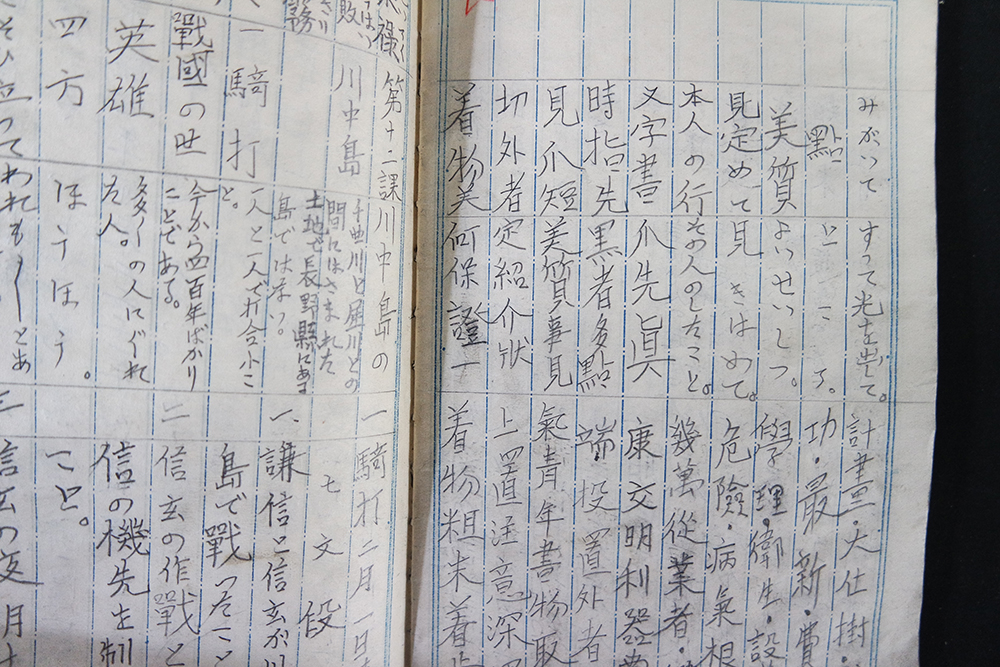 みがいて すって光を出して。
點 ところ。
美質 よいせいしつ。
見定めて見 きはめて。
本人の行 その人のしたこと。
文字書爪先眞
時指先黒者多點
見爪短美質事見
切外者定紹介狀
着物美何保證一
計畫・大仕掛・
功・最新・費
學理・衛生・設
危險・病氣・根
幾萬・從業者・
康 文明利器
端・投置外者
氣青年書物取
上置注意深
着物粗末着
永祿
敗
第十二課 川中島の
川中島 千曲川と犀川との
間にはさまれた
土地で長野縣にある
島ではない。
一騎打 一人と一人で打合ふこ
と。
戰國の世 今から四百年ばかり
ことである。
英雄 多くの人にすぐれ
た人。
四方 しほうほう。
われも〳〵とあ
一騎打 二月一日
七文段
一、謙信と信玄が川
島で戰ったこと
二 信玄の作戰と
信の機先を制
こと。
三 信玄の